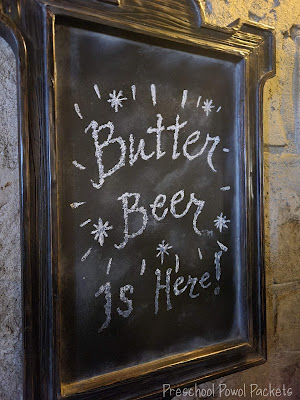 Butter
Beer
Is Here!
Preschool Powol Packets